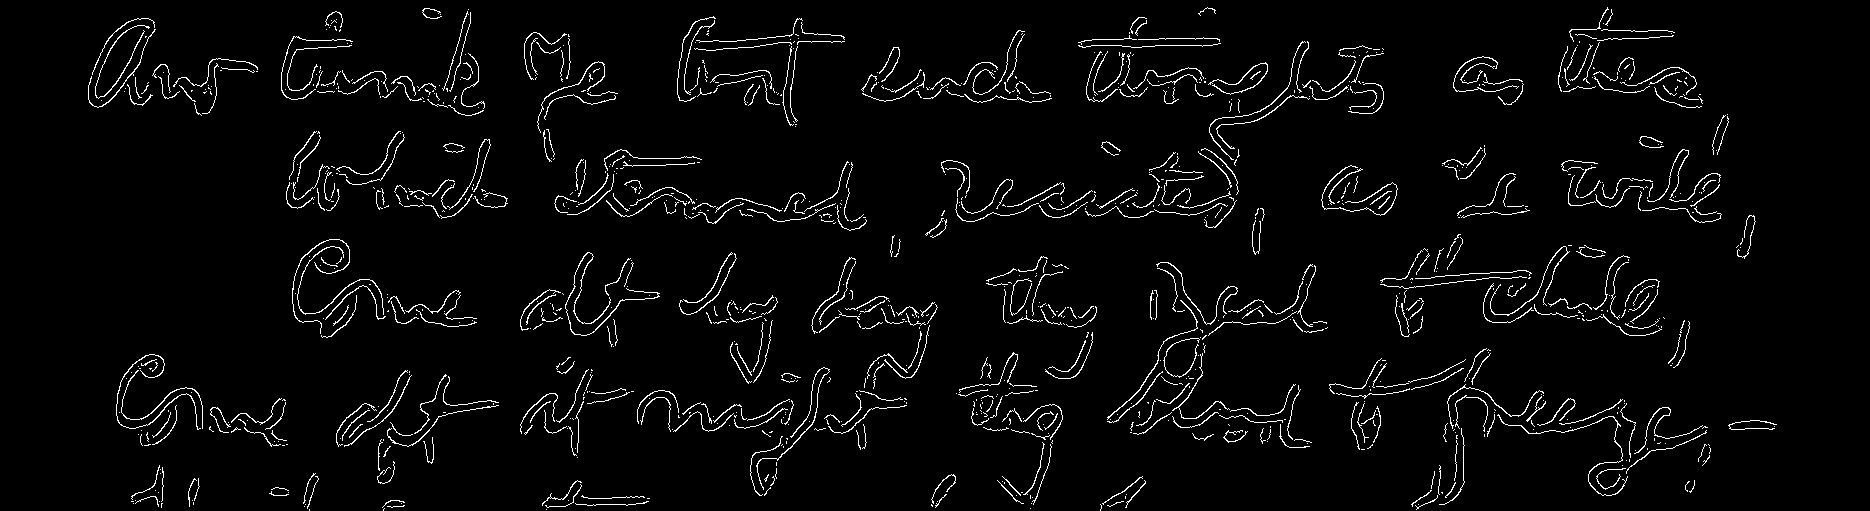 And think ye that such thoughts as these,
Which stemmed, resisted, as I write,
Come oft by day thy zeal to chill,
Come oft at night thy blood to freeze, —